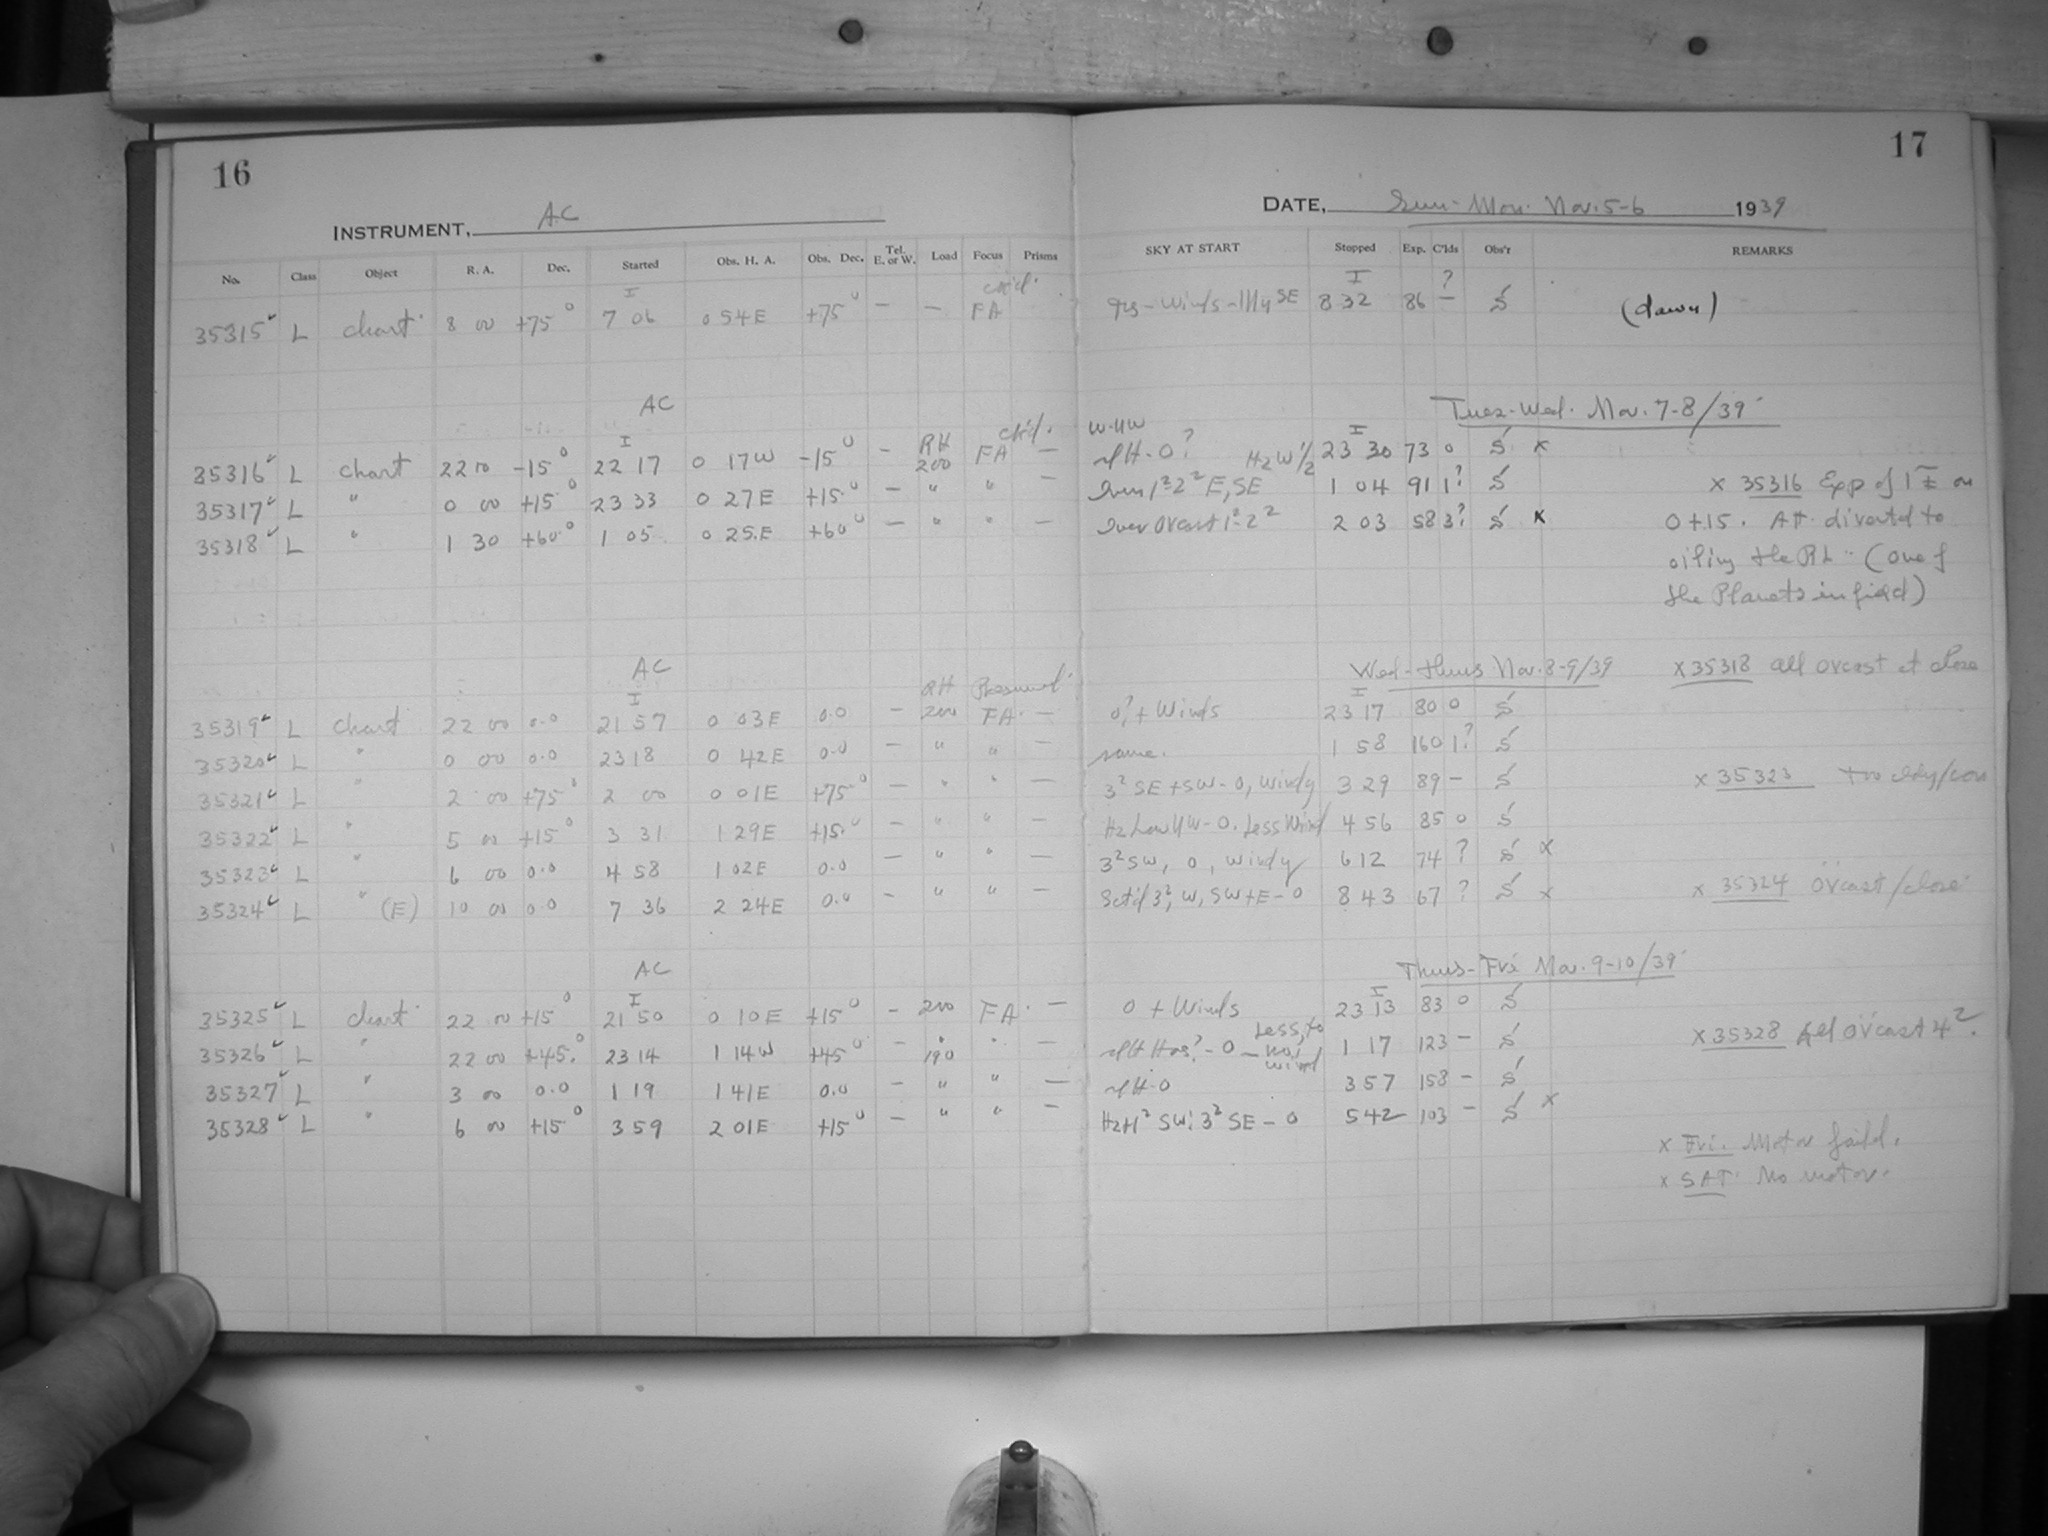 16
17
INSTRUMENT, AC
DATE, Sun-Mon. Nov. 5-6 1939
No. Class Object R. A. Dec. Started Obs. H. A. Obs. Dec. Tel. E. or W. Load Focus Prisms SKY AT START Stopped Exp. C'lds Obs'r REMARKS
35315 L chart 8 00 +75° 7 06 0 54E +75° — — FA SE 8 32 86 — S (dawn)
AC
Tues-Wed. Nov. 7-8/39
35316 L chart 22 10 -15° 22 17 0 17W -15° — RH 200 FA — H-0? H2W 1/2 23 30 73 0 S x
35317 L " 0 00 +15° 23 33 0 27E +15° — " " — E, SE 1 04 91 1? S
x 35316 Exp of 1 I on
35318 L " 1 30 +60° 1 05 0 25E +60° — " " — 2 03 58 3? S x
0 +15. At. diverted to
oiling the RL (one of
the Planets in field)
AC
Wed-Thurs Nov. 8-9/39
x 35318 all ovcast at close
35319 L chart 22 00 0.0 21 57 0 03E 0.0 — RH 200 FA — 0? + Winds 23 17 80 0 S
35320 L " 0 00 0.0 23 18 0 42E 0.0 — " " — same. 1 58 160 1? S
35321 L " 2 00 +75° 2 00 0 01E +75° — " " — 3² SE + SW - 0, windy 3 29 89 — S
x 35323 too
35322 L " 5 00 +15° 3 31 1 29E +15° — " " — H2 Low NW - 0. Less Wind 4 56 85 0 S
35323 L " 6 00 0.0 4 58 1 02E 0.0 — " " — 3² SW, 0, windy 6 12 74 ? S x
35324 L " (E) 10 00 0.0 7 36 2 24E 0.0 — " " — Sct'd 3², W, SW + E - 0 8 43 67 ? S x
x 35324 ovcast/close
AC
Thurs-Fri Nov. 9-10/39
35325 L chart 22 00 +15° 21 50 0 10E +15° — 200 FA. — 0 + Winds 23 13 83 0 S
35326 L " 22 00 +45° 23 14 1 14W +45° — 190 " — - 0 - Less, to no wind 1 17 123 — S
x 35328 All ovcast 4².
35327 L " 3 00 0.0 1 19 1 41E 0.0 — " " — H-0 3 57 158 — S
35328 L " 6 00 +15° 3 59 2 01E +15° — " " — SW; 3² SE - 0 5 42 103 — S x
x Fri. Motor faild.
x SAT. No motor.